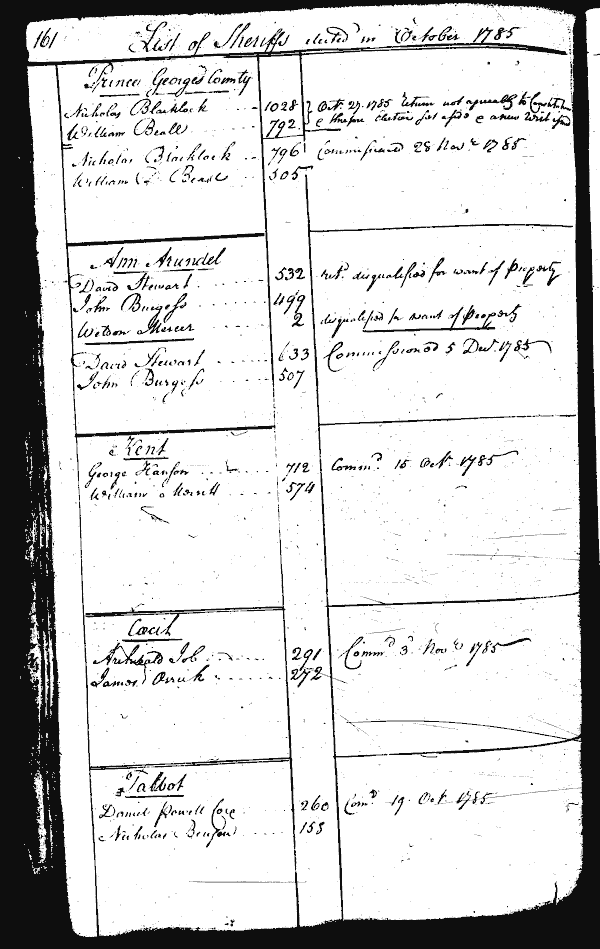 161
List of Sheriffs elected in October 1785
Prince Georges County
Nicholas Blacklock 1028 Octr. 27. 1785 return not agreeably to Constitution
William Beall 792 & therefore election set aside & a new Writ
Nicholas Blacklock 796 Commissioned 28 Novr. 1785
William Beall 505
Ann Arundel
David Stewart 532 retd. disqualified for want of Property
John Burgess 499
Wetson Mercer 2 disqualified for want of Property
David Stewart 633 Commissioned 5 Decr. 1785
John Burgess 507
Kent
George Hanson 712 Commd. 15 Octr. 1785
William Merritt 574
Cecil
Archibald Job 291 Commd. 3d Novr. 1785
James Orrick 272
Talbot
Daniel Powell Cox 260 Comd. 19 Octr. 1785
Nicholas Benson 158